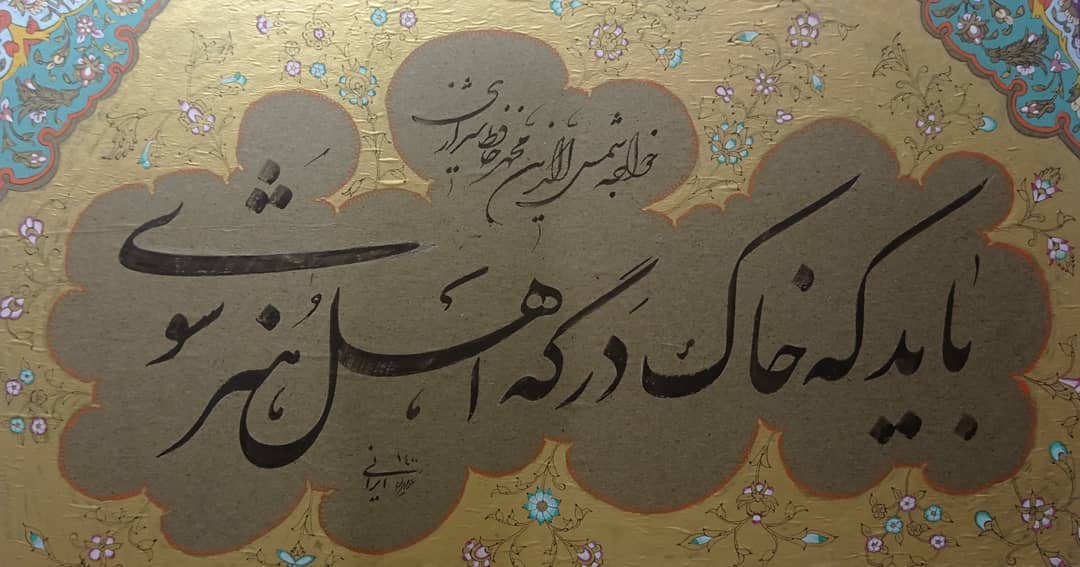 خواجه شمس الدین محمد حافظ شیرازی
باید که خاک درگه اهل هنر شوی
۱۴۰۰
ایرانی